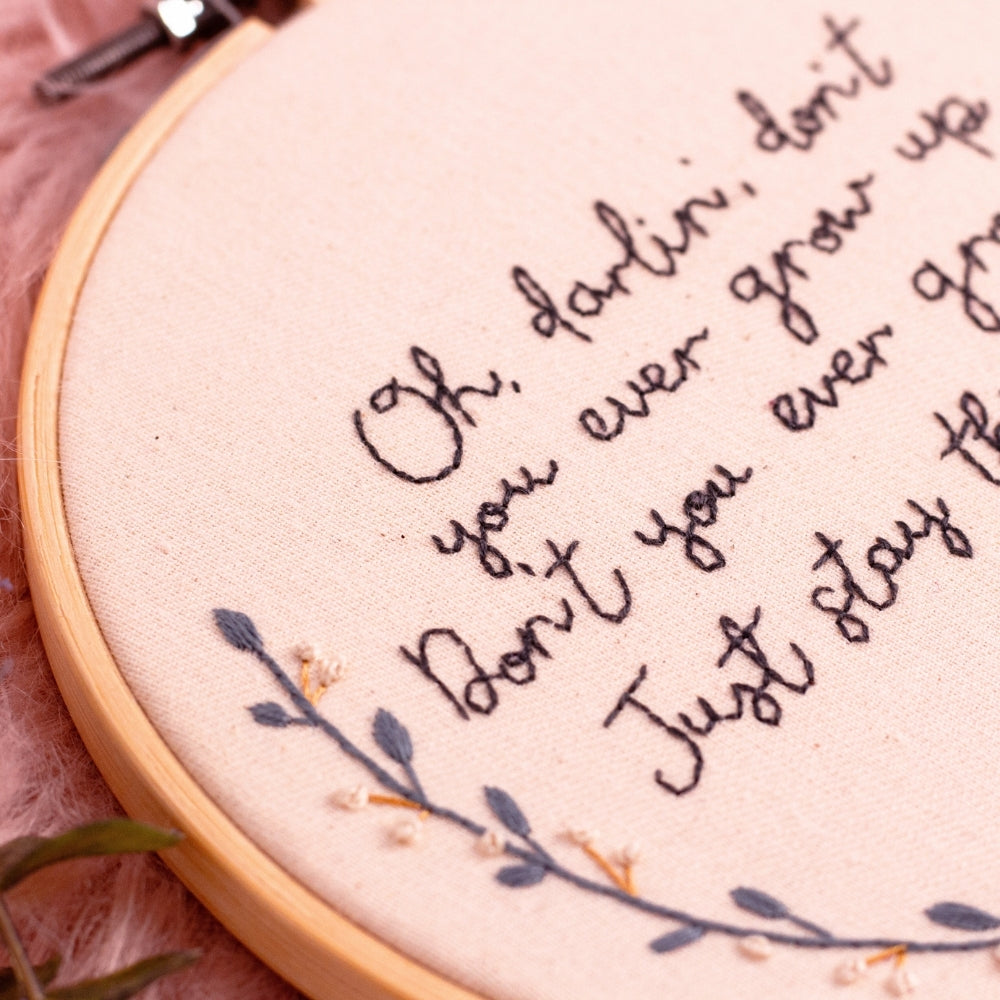 Oh, darlin', don't
you ever grow up
Don't you ever
Just stay